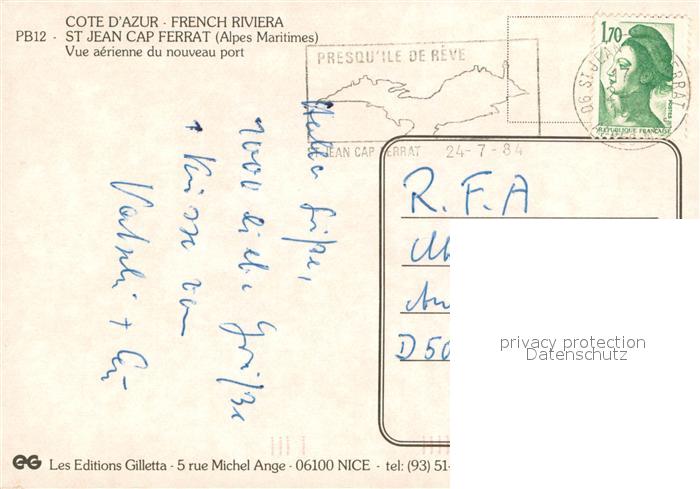 COTE D'AZUR · FRENCH RIVIERA
PB12 · ST JEAN CAP FERRAT (Alpes Maritimes)
Vue aérienne du nouveau port
PRESQU'ILE DE RÊVE
JEAN CAP FERRAT 24-7-84
1,70
RÉPUBLIQUE FRANÇAISE
06 ST JEAN FERRAT
Hallo
1000 liebe Grüße
+ Küsse von
R.F.A
D 50
privacy protection
Datenschutz
GG Les Editions Gilletta · 5 rue Michel Ange · 06100 NICE · tel: (93) 51-